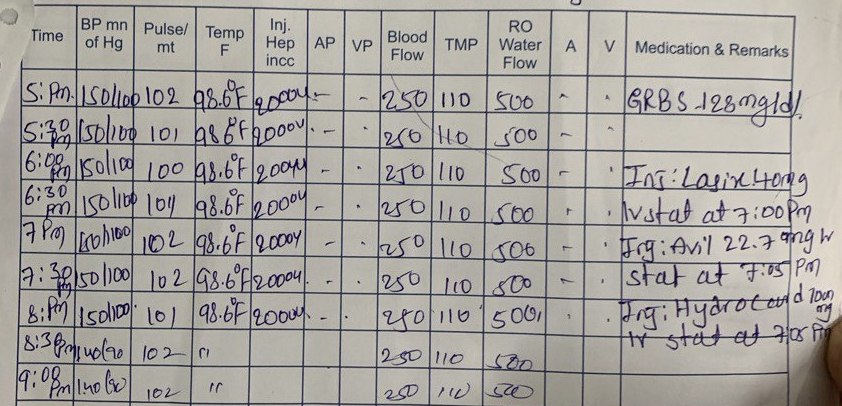 Time BP mn of Hg Pulse/ mt Temp F Inj. Hep incc AP VP Blood Flow TMP RO Water Flow A V Medication & Remarks
5:Pm. 150/100 102 98.6°F 2000u - - 250 110 500 - - GRBS -128mg/dl.
5:30 Pm 150/100 101 98.6°F 2000u - - 250 110 500 - -
6:00 Pm 150/100 100 98.6°F 2000u - - 250 110 500 - - Inj: Lasix 40mg
6:30 Pm 150/100 101 98.6°F 2000u - - 250 110 500 - - Iv stat at 7:00Pm
7 Pm 150/100 102 98.6°F 2000u - - 250 110 500 - - Inj: Avil 22.7
7:30 Pm 150/100 102 98.6°F 2000u - - 250 110 500 - - stat at 7:05 Pm
8:Pm 150/100 101 98.6°F 2000u - - 250 110 500 - - Inj: Hydrocard 100 mg
Iv stat at 7:05 Pm
8:30Pm 140/90 102 " 250 110 500
9:00 Pm 140/90 102 " 250 110 500